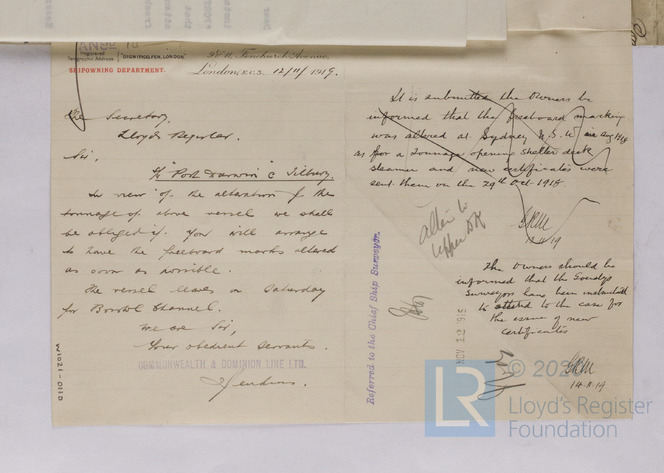 Registered
Telegraphic Address
"DOMINGOLFEN, LONDON"
SHIPOWNING DEPARTMENT.
9 & 11, Fenchurch Avenue,
London, E.C.3. 12/11/1919.
The Secretary,
Lloyds Register.
Sir,
"Port Darwin" @ Tilbury.
In view of the alteration of the
tonnage of above vessel we shall
be obliged if you will arrange
to have the freeboard marks altered
as soon as possible.
The vessel leaves on Saturday
for Bristol Channel.
We are Sir,
Your obedient Servants.
COMMONWEALTH & DOMINION LINE LTD.
Jenkins.
W1021-0110
It is submitted the Owners be
informed that the freeboard marking
was altered at Sydney N.S.W. in Aug 1918
as for a tonnage opening shelter deck
steamer and new certificates were
sent them on the 29th Oct 1918
12.11.19
alter to
upper DK
Referred to the Chief Ship Surveyor.
The Owners should be
informed that the London
Surveyors have been instructed
to attend to the case for
the issue of new
certificates
NOV 12 1919
14.11.19
LR
Lloyd's Register
Foundation